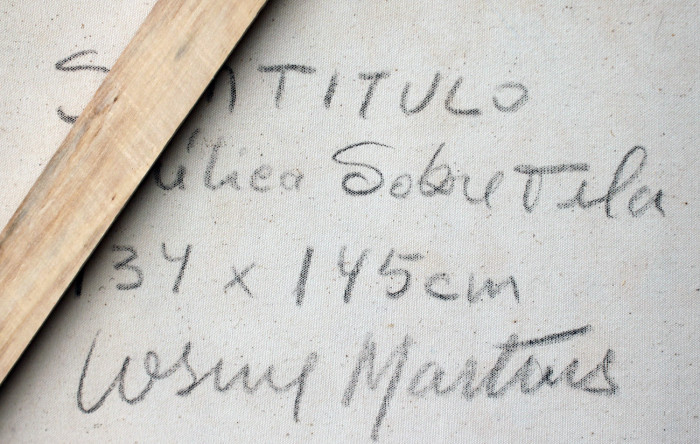 S M TITULO
ílica Sobre Tela
134 x 145cm
Cosme Martins